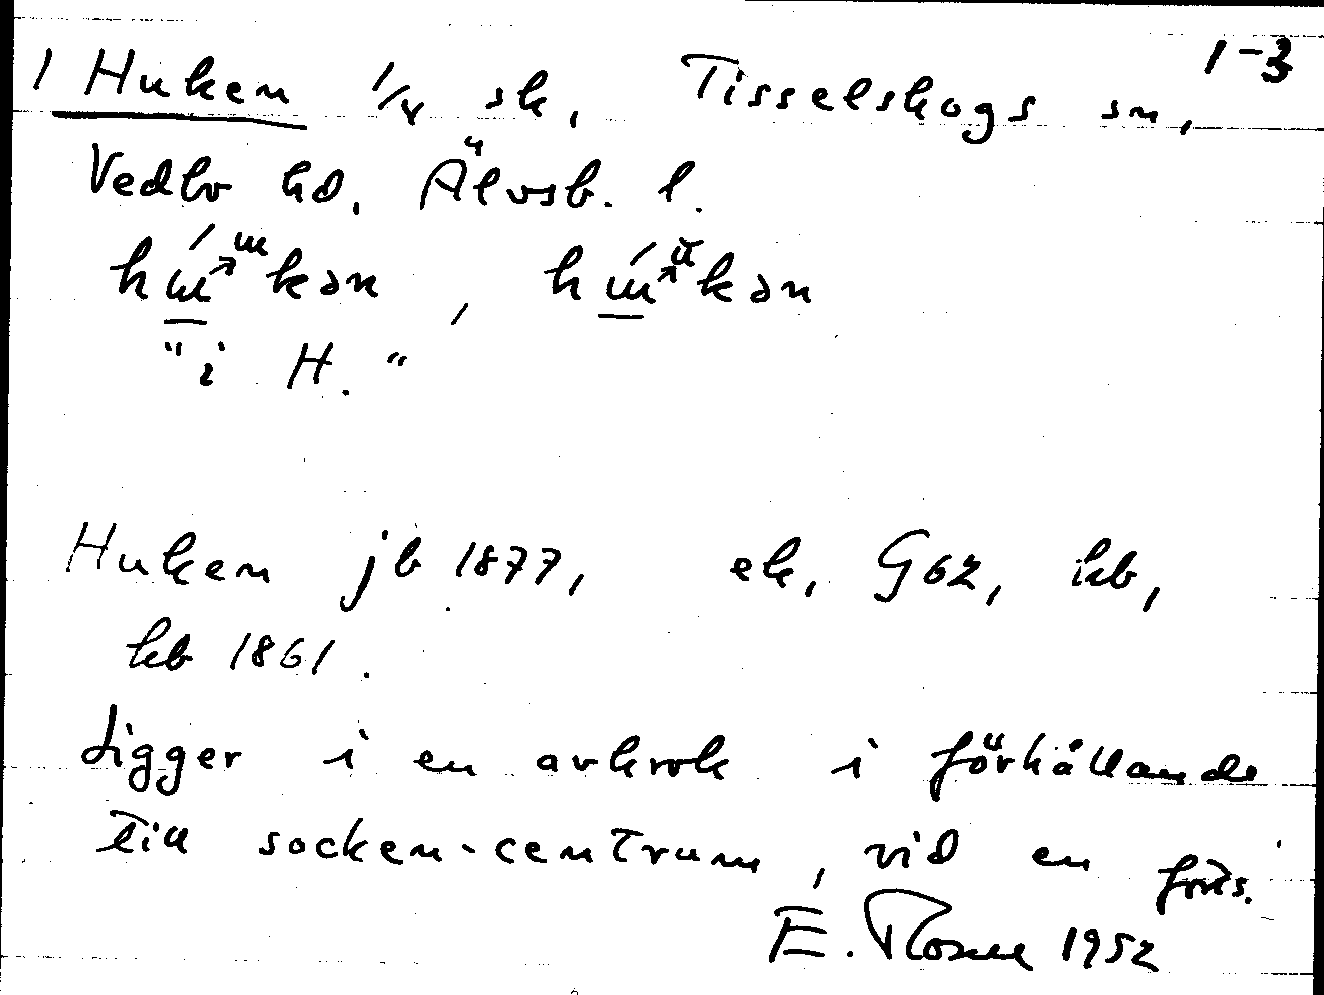 1-3
1 Huken 1/4 sk, Tisselskogs sn,
Vedbo hd, Älvsb. l.
"i H."
Huken jb 1877, ek, G62, hb,
kb 1861.
Ligger i en avkrok i förhållande
till socken-centrum, vid en fors.
E. Rosell 1952